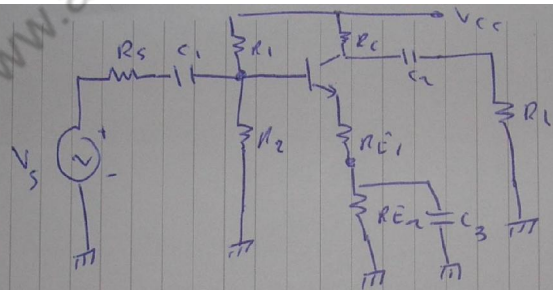 www.
Vcc
Rs
C1
R1
Rc
C2
RL
Vs
+
-
R2
RE1
RE2
C3